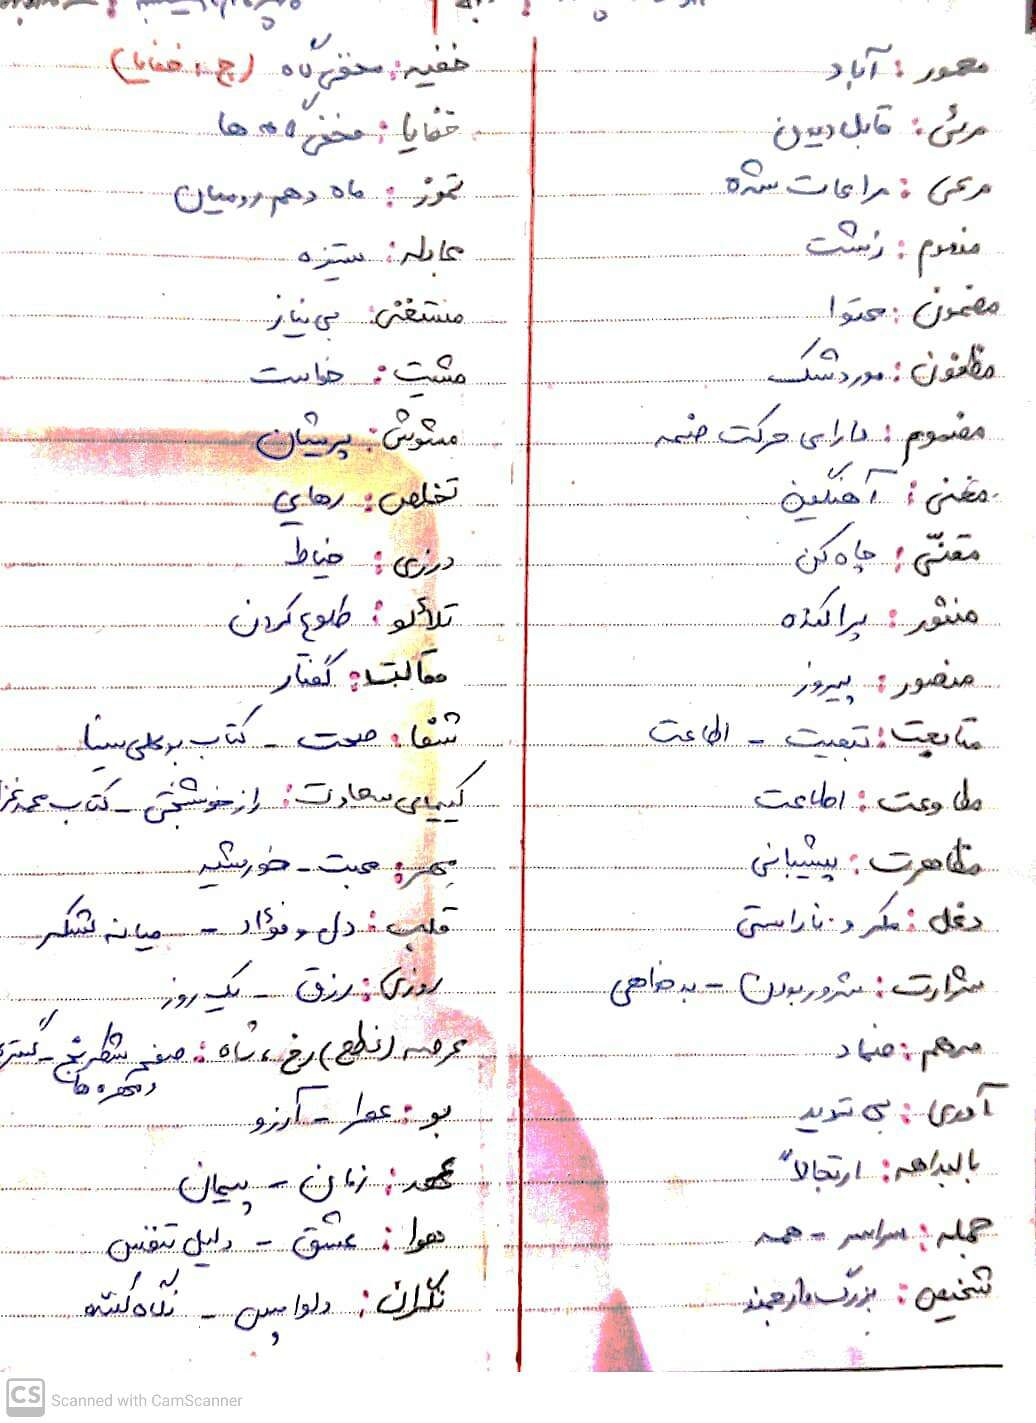 معمور : آباد
مرئی : قابل دیدن
مرعی : مراعات شده
مذموم : زشت
مضمون : محتوا
مظنون : مورد شک
مضموم : دارای حرکت ضمه
مغنی : آهنگین
مقنّی : چاه کن
منثور : پراکنده
منصور : پیروز
متابعت : تبعیت - اطاعت
مطاوعت : اطاعت
مظاهرت : پشیبانی
دغل : مکر و ناراستی
شرارت : شرور بودن - بدخواهی
مرهم : ضماد
آری : بی تردید
بالبداهه : ارتجالاً
جمله : سراسر - همه
شخیص : بزرگ و ارجمند
خفیه : مخفی گاه (ج : خفایا)
خفایا : مخفی گاه ها
تموز : ماه دهم رومیان
مجادله : ستیزه
مستغنی : بی نیاز
مشیت : خواست
مشوش : پریشان
تخلص : رهایی
درزی : خیاط
تلألو : طلوع کردن
مقالت : گفتار
شفا : صحت - کتاب بوعلی سینا
کیمیای سعادت : راز خوشبختی - کتاب محمد غزا
مهر : محبت - خورشید
قلب : دل و فؤاد - میانه لشکر
روزی : رزق - یک روز
عرصه (نطع) رخ ، شاه : صفحه شطرنج -
و مهره ها
بو : عطر - آرزو
عهد : زمان - پیمان
هوا : عشق - دلیل تنفس
نگران : دلواپس - نگاه کننده
CS Scanned with CamScanner